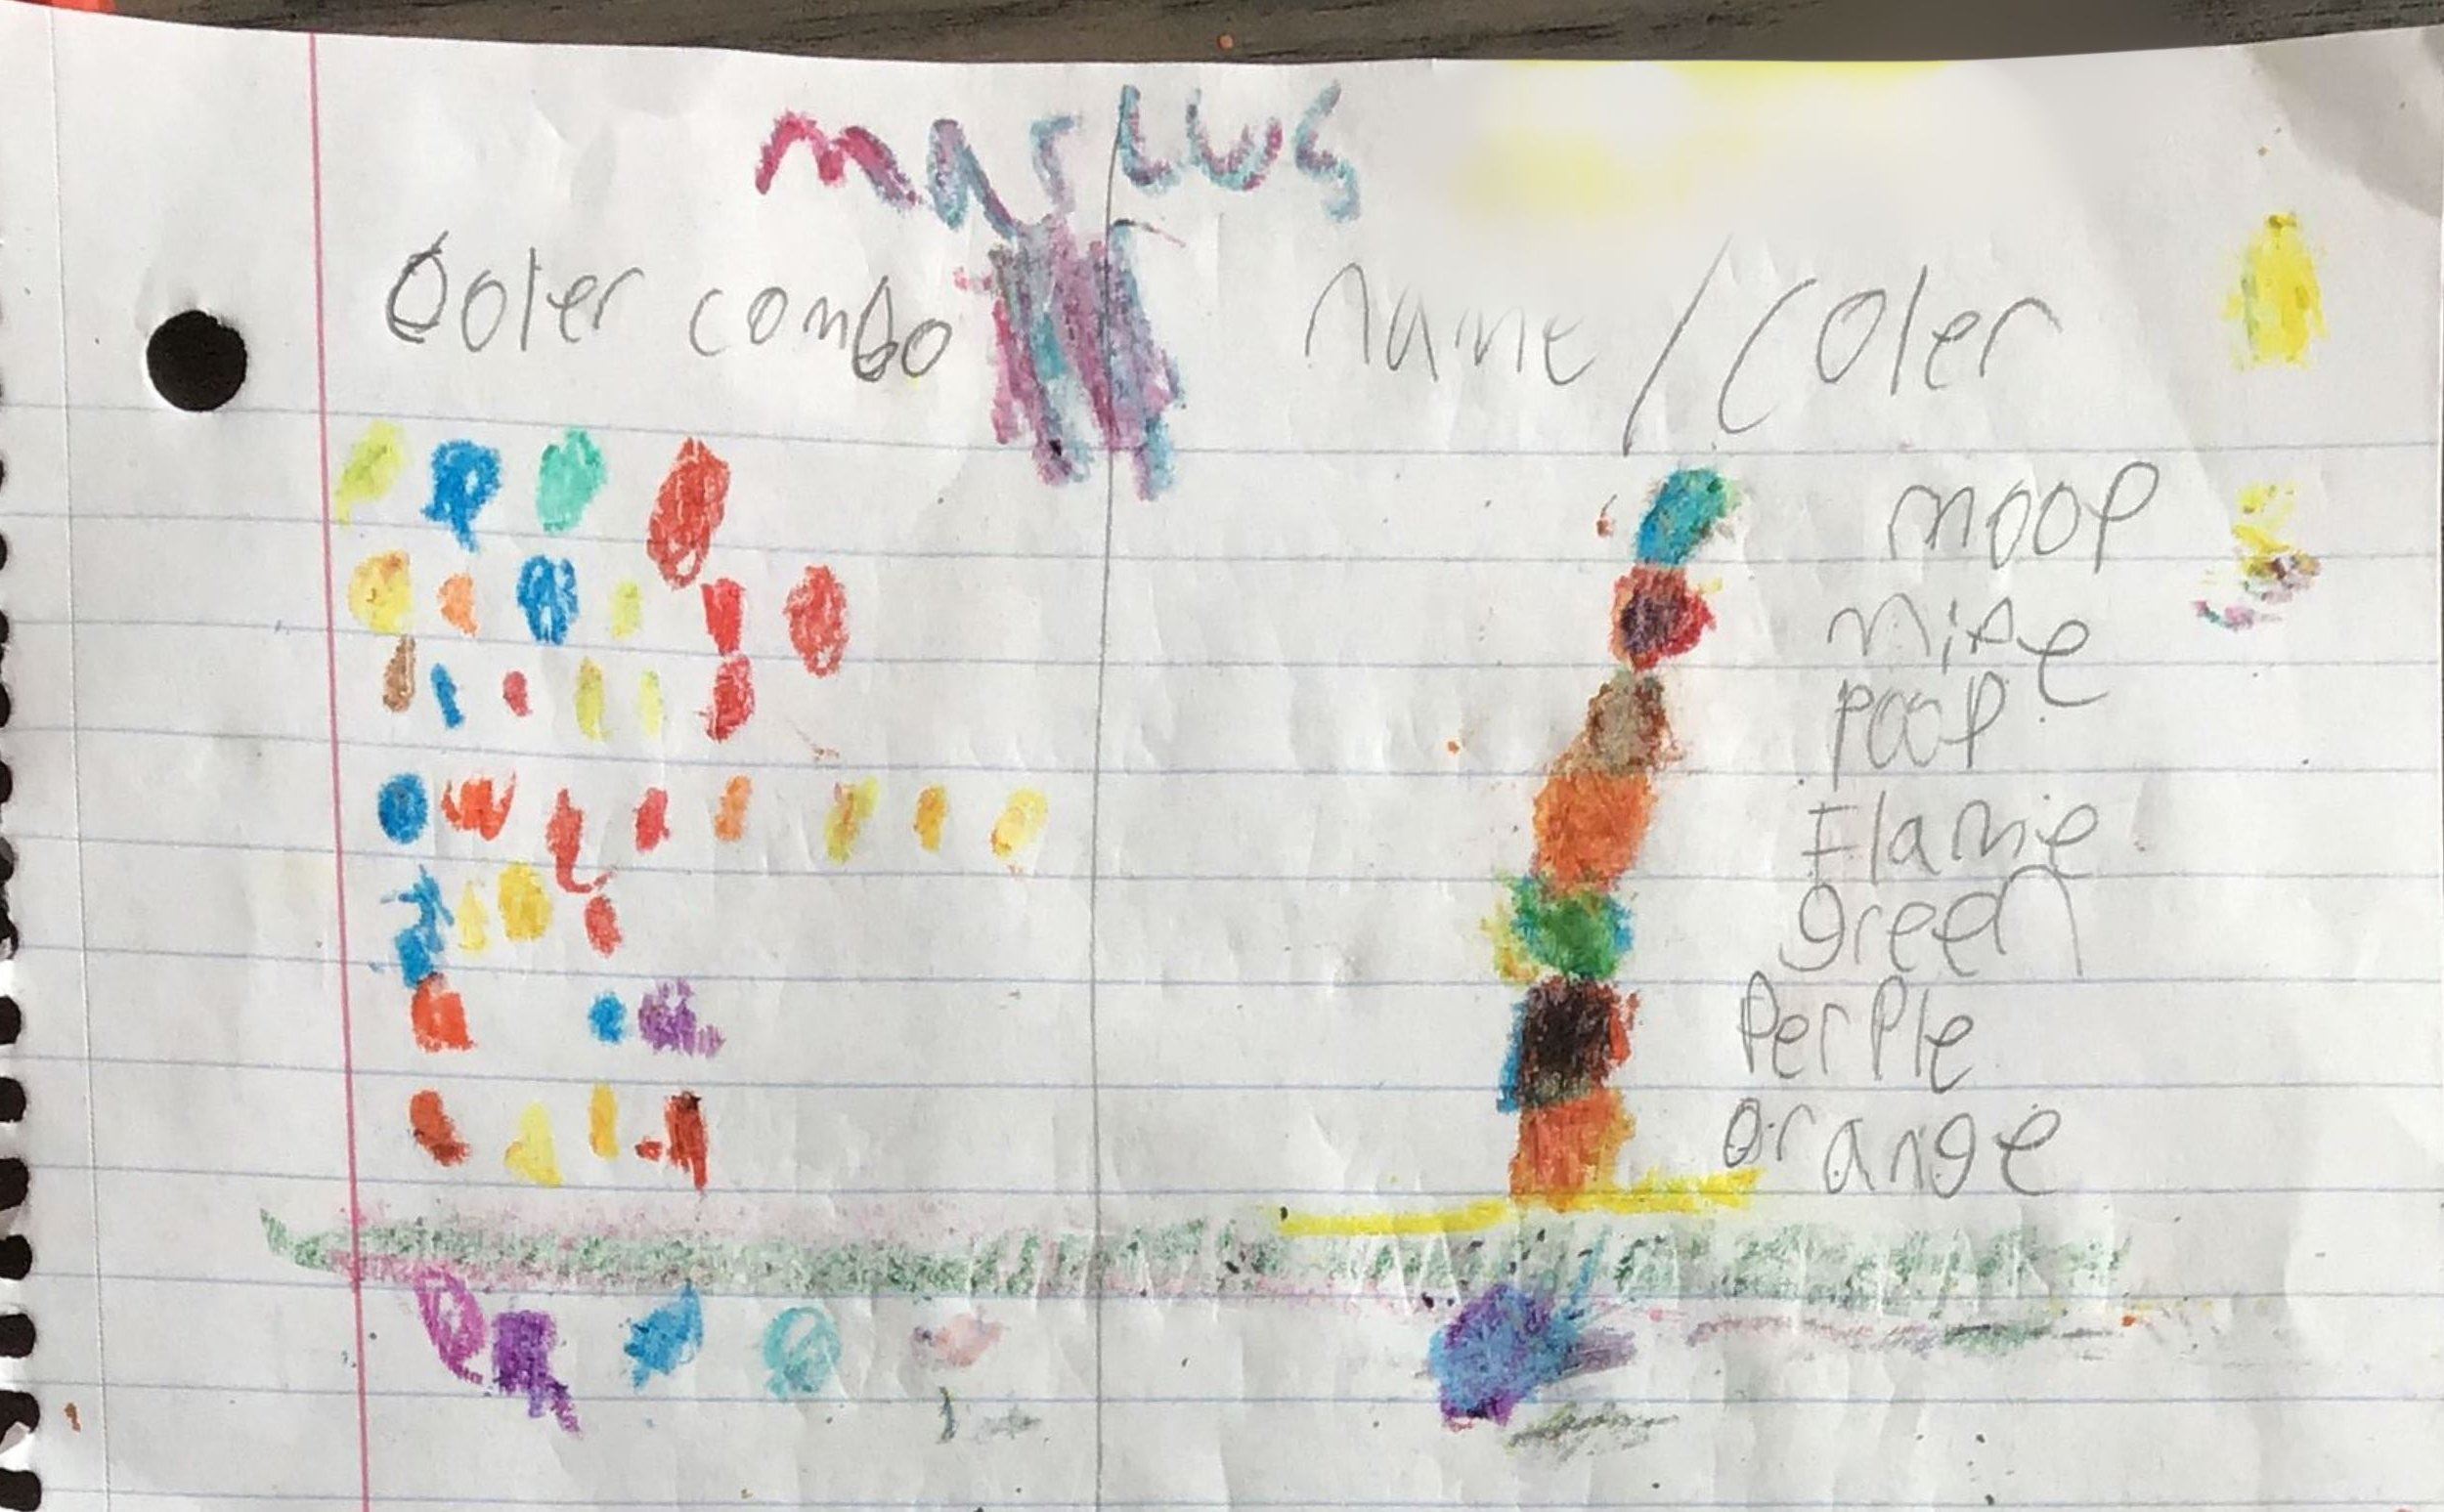 marcus
Coler combo name/Coler
moop
mite
poop
Flame
green
PerPle
orange